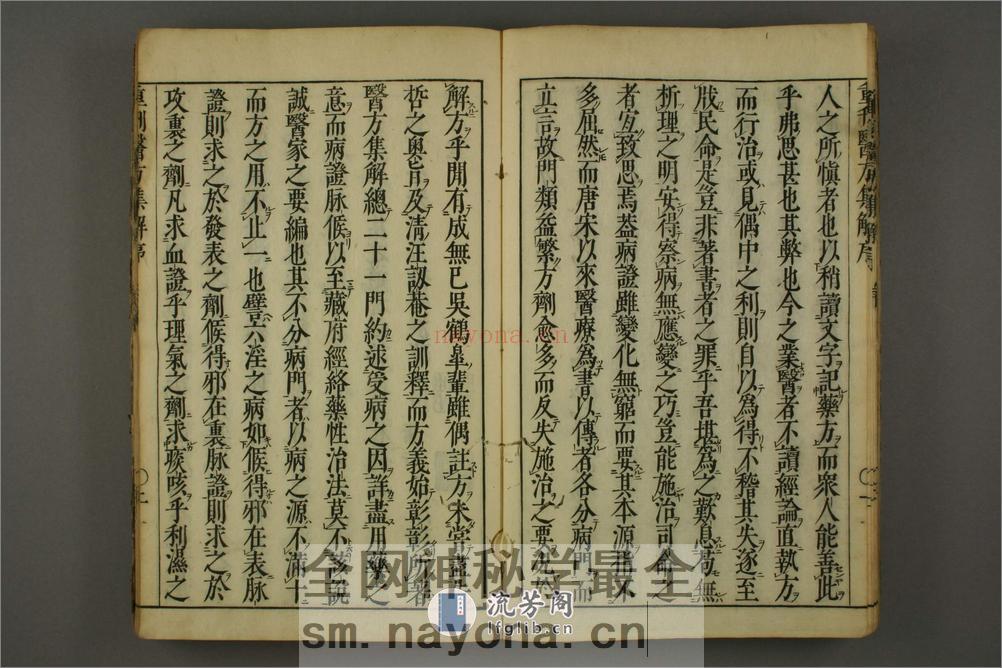 人之所慎者也以稍讀文字記藥方而衆人能善此
乎弗思甚也其弊也今之業醫者不讀經論直執方
而行治或見偶中之利則自以爲得不稽其失遂至
戕民命是豈非著書者之罪乎吾堪爲之歎息苟無
析理之明安得察病無應變之巧豈能施治司命之
者宜致思焉蓋病證雖變化無窮而要其本源皆不
多屈然而唐宋以來醫療爲書以傳者各分病門而
立言故門類益繁方劑愈多而反失施治之要況於
解方乎聞有成無已吳鶴皐輩雖偶註方未嘗盡
哲之奧旨及淸汪訒菴之訓釋而方義始彰彰所著
醫方集解總二十一門約述受病之因詳盡用藥之
意而病證脉候以至藏府經絡藥性治法莫不該說
誠醫家之要編也其不分病門者以病之源不滿十
而方之用不止一也譬六淫之病如候得邪在表脉
證則求之於發表之劑候得邪在裏脉證則求之於
攻裏之劑凡求血證乎理氣之劑求痰咳乎利濕之
重刊醫方集解序
全网神秘学最全
流芳阁
lfglib.cn
sm.nayona.cn
nayona.cn